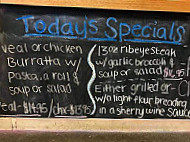 Todays Specials
Veal or chicken
Burratta w/
Pasta, a roll &
soup or salad
Veal-$18.95/chx-$13.95
13oz ribeye steak
w/garlic broccoli &
soup or salad $
Either grilled or
w/a light flour breading
in a sherry wine sauce